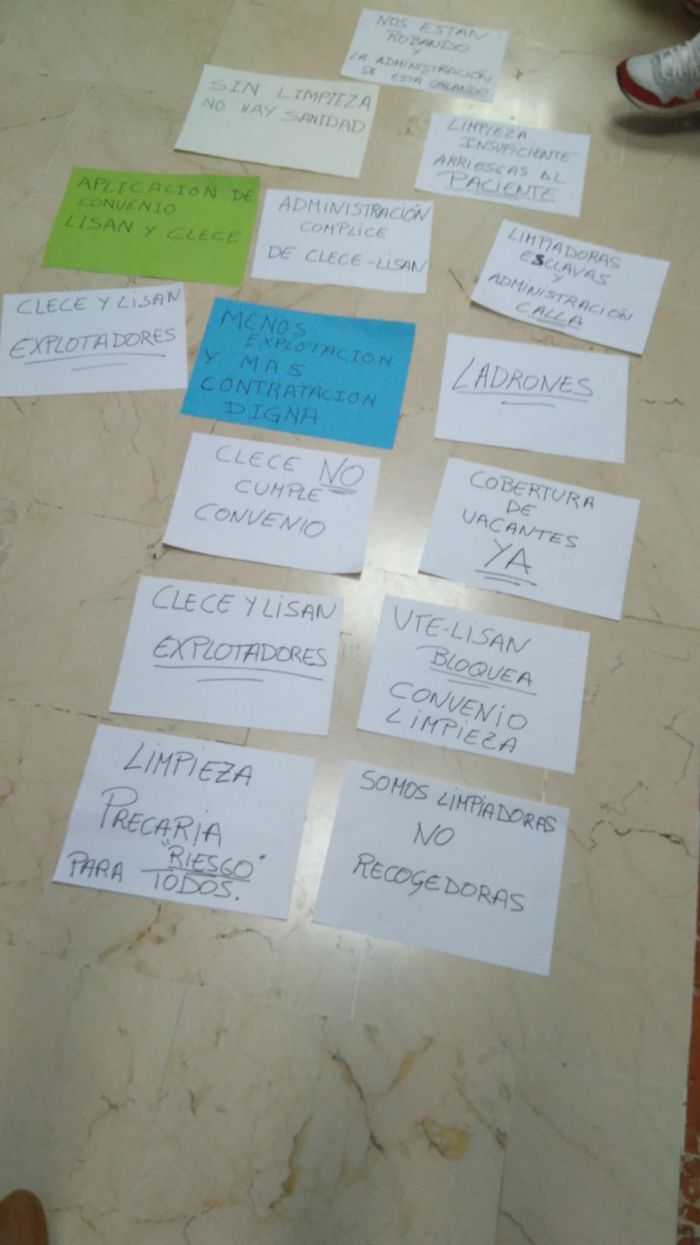 NOS ESTAN
ROBANDO
Y
LA ADMINISTRACIÓN
SE ESTA CALLANDO
SIN LIMPIEZA
NO HAY SANIDAD
LIMPIEZA
INSUFICIENTE
ARRIESGAS AL
PACIENTE
APLICACION DE
CONVENIO
LISAN Y CLECE
ADMINISTRACIÓN
COMPLICE
DE CLECE-LISAN
LIMPIADORAS
ESCLAVAS
Y
ADMINISTRACIÓN
CALLA
CLECE Y LISAN
EXPLOTADORES
MENOS
EXPLOTACION
Y MAS
CONTRATACION
DIGNA
LADRONES
CLECE NO
CUMPLE
CONVENIO
COBERTURA
DE
VACANTES
YA
CLECE Y LISAN
EXPLOTADORES
UTE-LISAN
BLOQUEA
CONVENIO
LIMPIEZA
LIMPIEZA
PRECARIA
"RIESGO"
PARA TODOS.
SOMOS LIMPIADORAS
NO
RECOGEDORAS